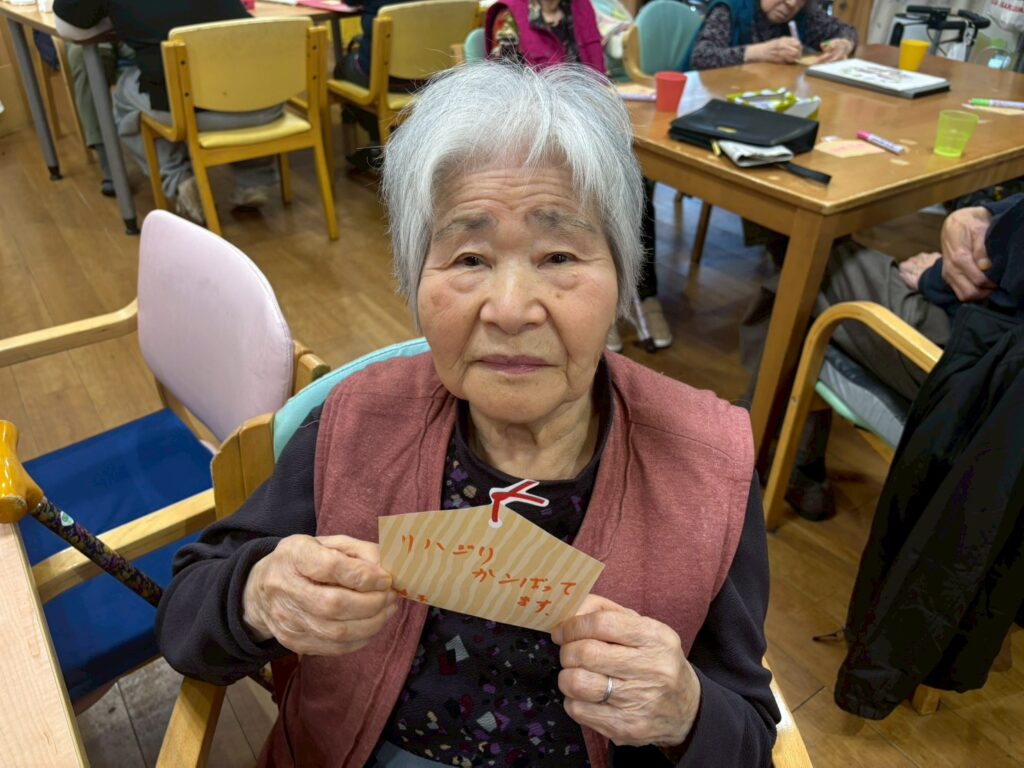 リハビリ
がンばって
ます。